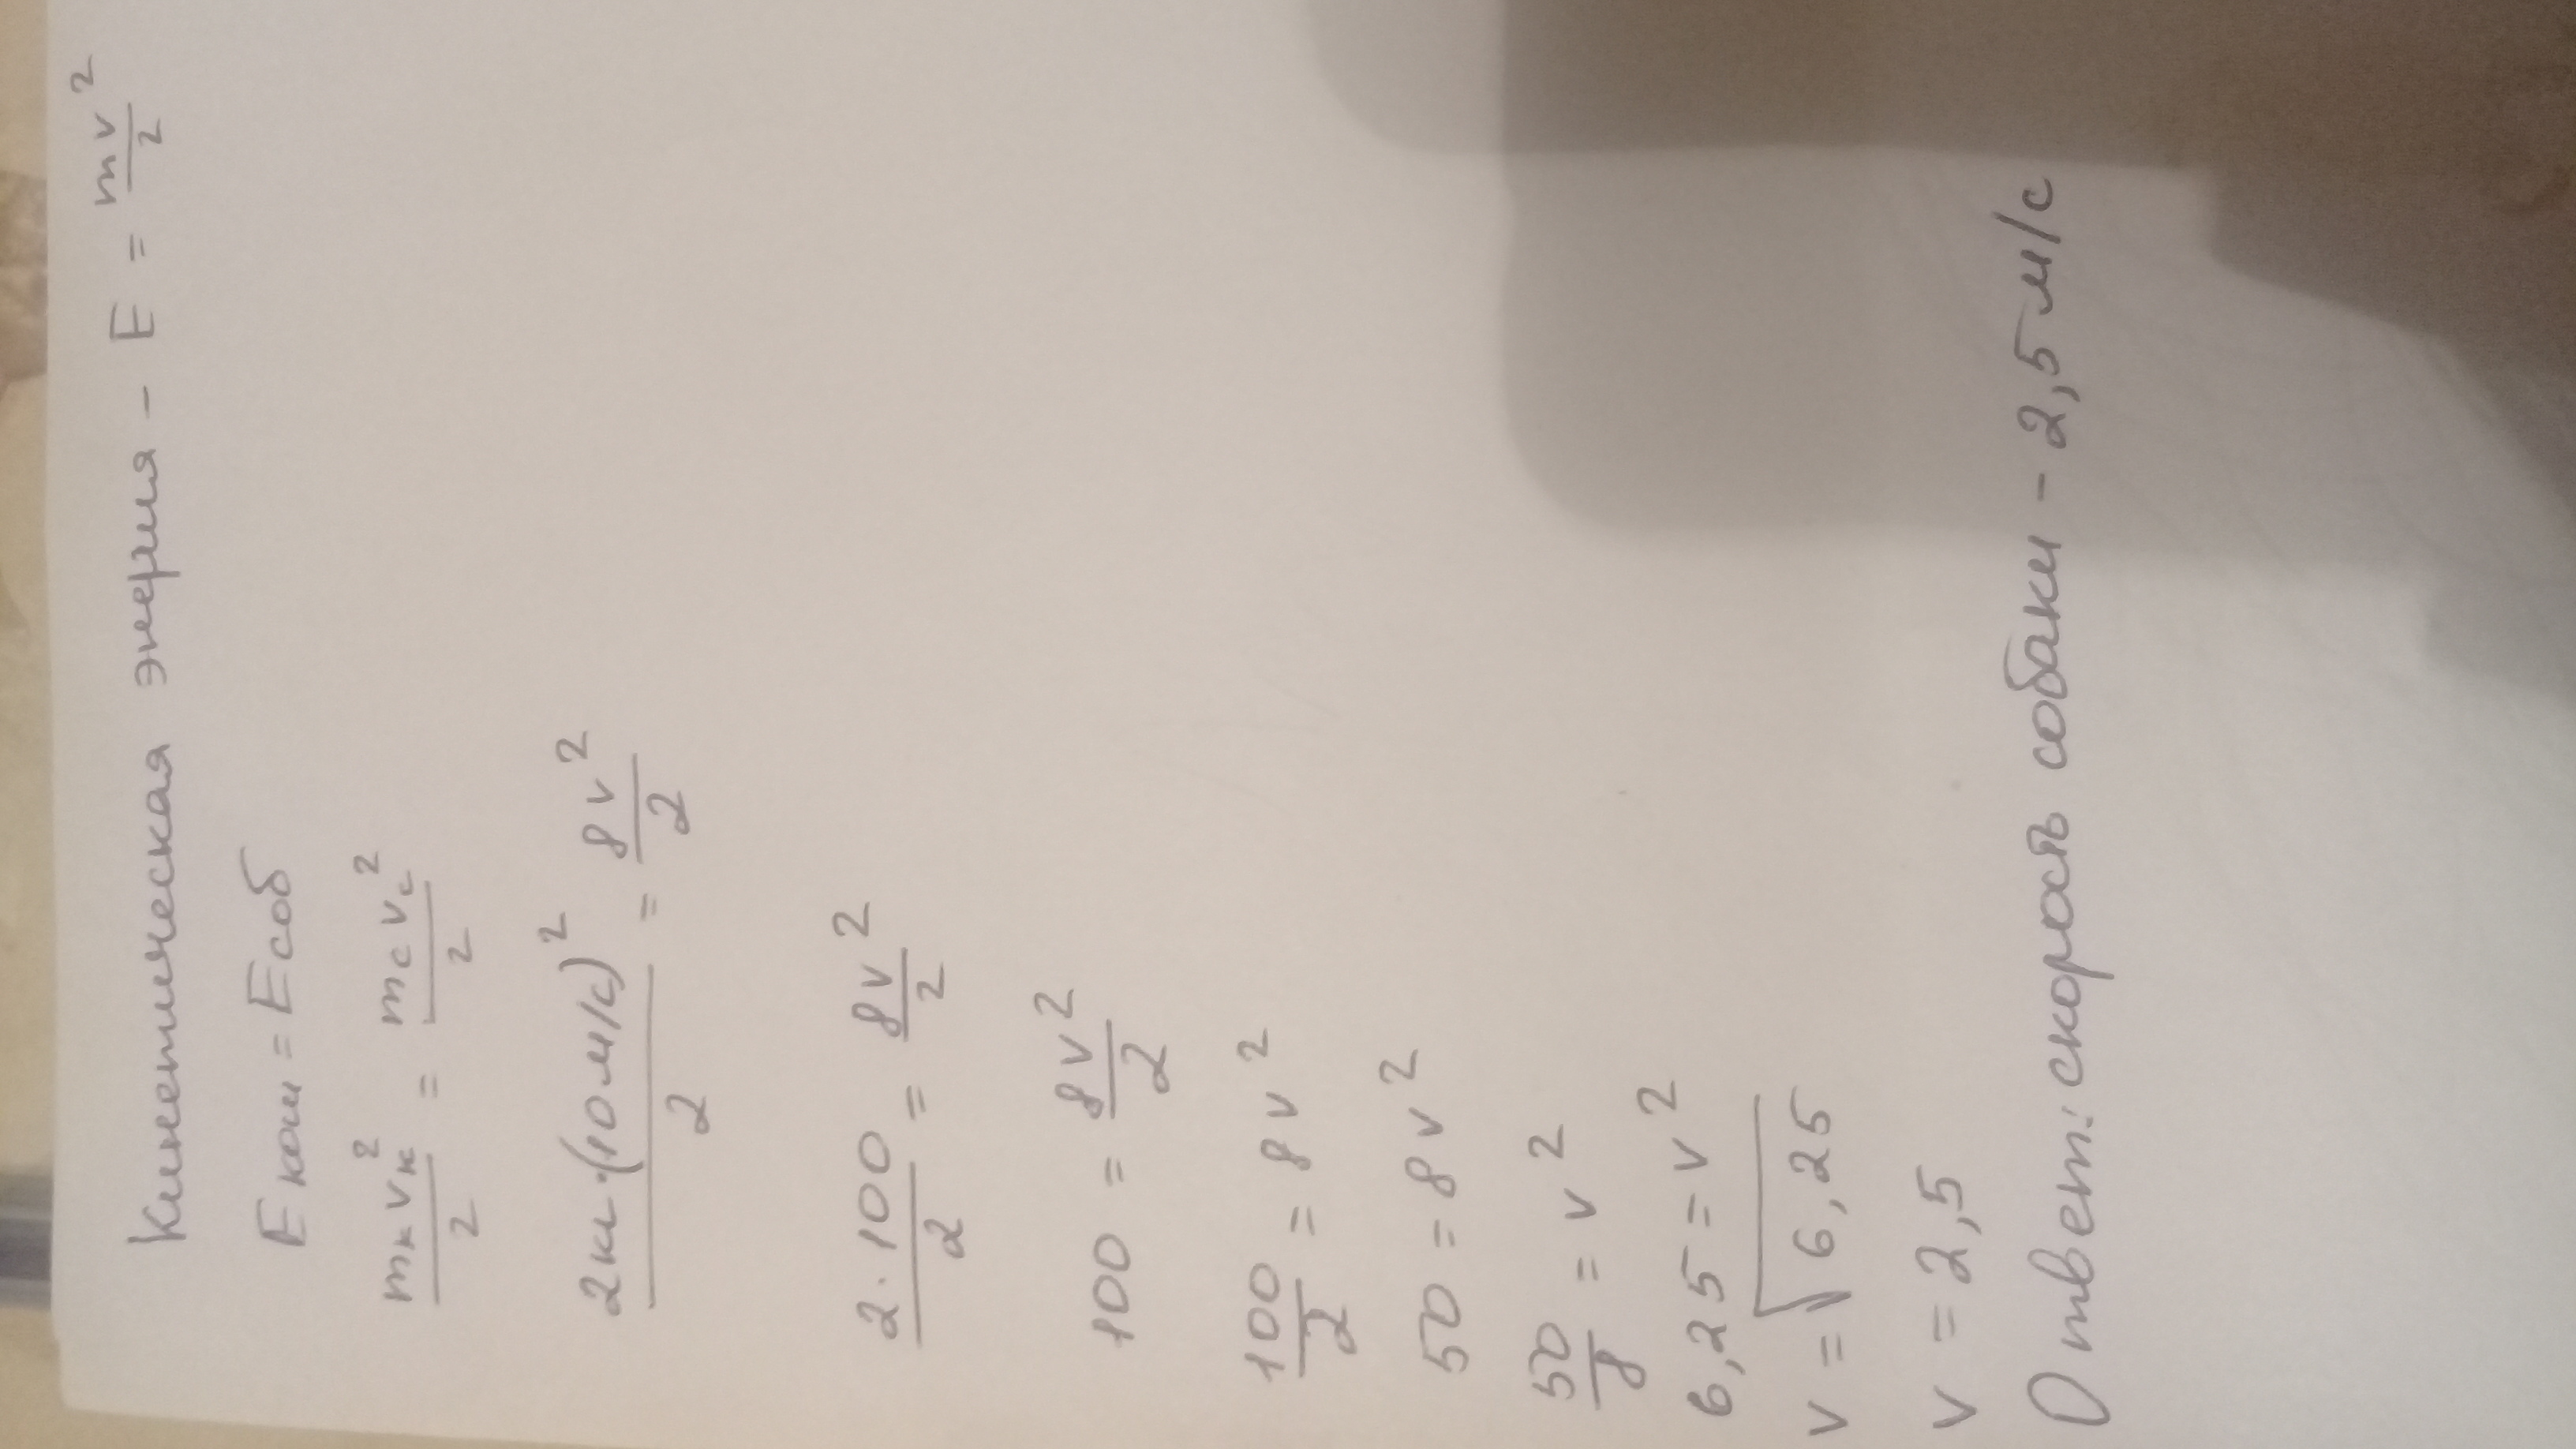 Кинетическая энергия - E = mv²/2
Eкош = Eсоб
mкvк²/2 = mсvс²/2
2кг·(10м/с)²/2 = 8v²/2
2·100/2 = 8v²/2
100 = 8v²/2
100/2 = 8v²
50 = 8v²
50/8 = v²
6,25 = v²
v = √6,25
v = 2,5
Ответ: скорость собаки - 2,5м/с